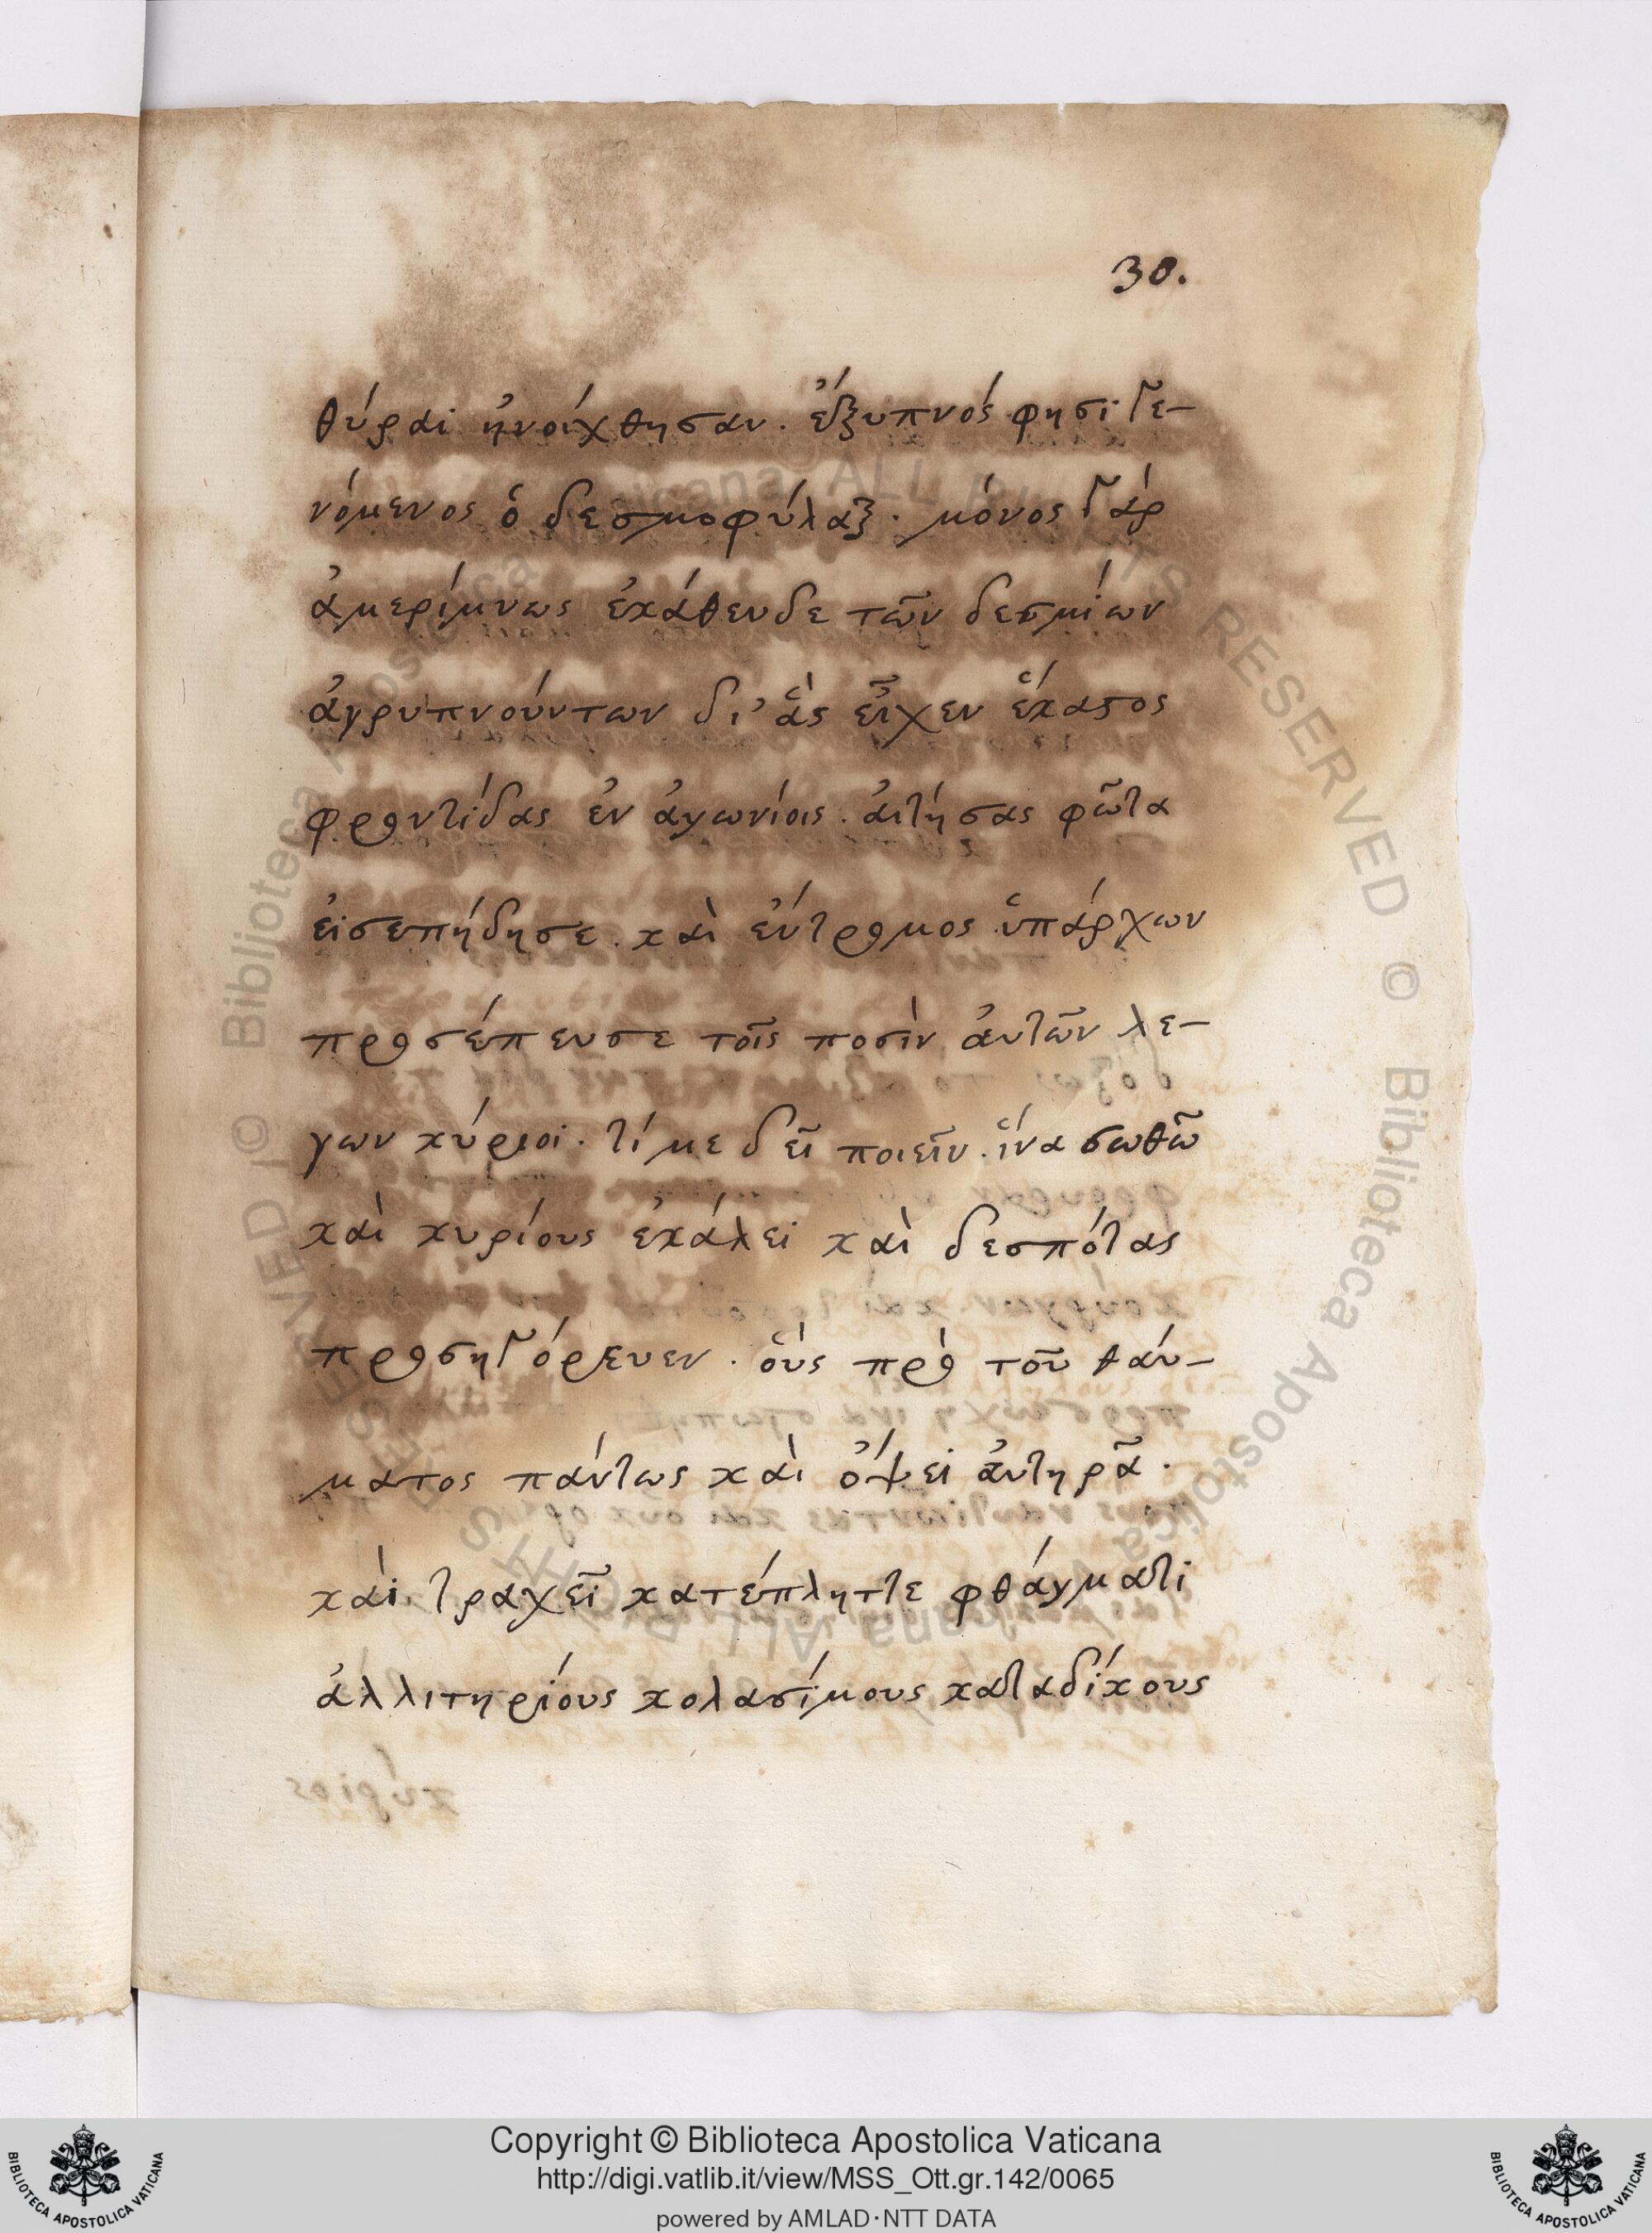 30.
θύραι ἠνοίχθησαν. ἔξυπνός φησι γε-
νόμενος ὁ δεσμοφύλαξ. μόνος γάρ
ἀμερίμνως ἐκάθευδε τῶν δεσμίων
ἀγρυπνούντων δι' ἃς εἶχεν ἕκαστος
φροντίδας ἐν ἀγωνίοις. ἀιτήσας φῶτα
ἐισεπήδησε. καὶ ἔντρομος ὑπάρχων
προσέπευσε τοῖς ποσὶν ἀυτῶν λε-
γων κύριοι. τί με δεῖ ποιεῖν. ἵνα σωθῶ
καὶ κυρίους ἐκάλει καὶ δεσπότας
προσηγόρευεν. οὕς πρὸ τοῦ θάυ-
ματος πάντως καὶ ὄψει ἀυτηρᾶ.
καὶ τραχεῖ κατέπληττε φθάγματι
ἀλλιτηρίους κολασίμους καταδίκους
Copyright © Biblioteca Apostolica Vaticana
http://digi.vatlib.it/view/MSS_Ott.gr.142/0065
powered by AMLAD·NTT DATA